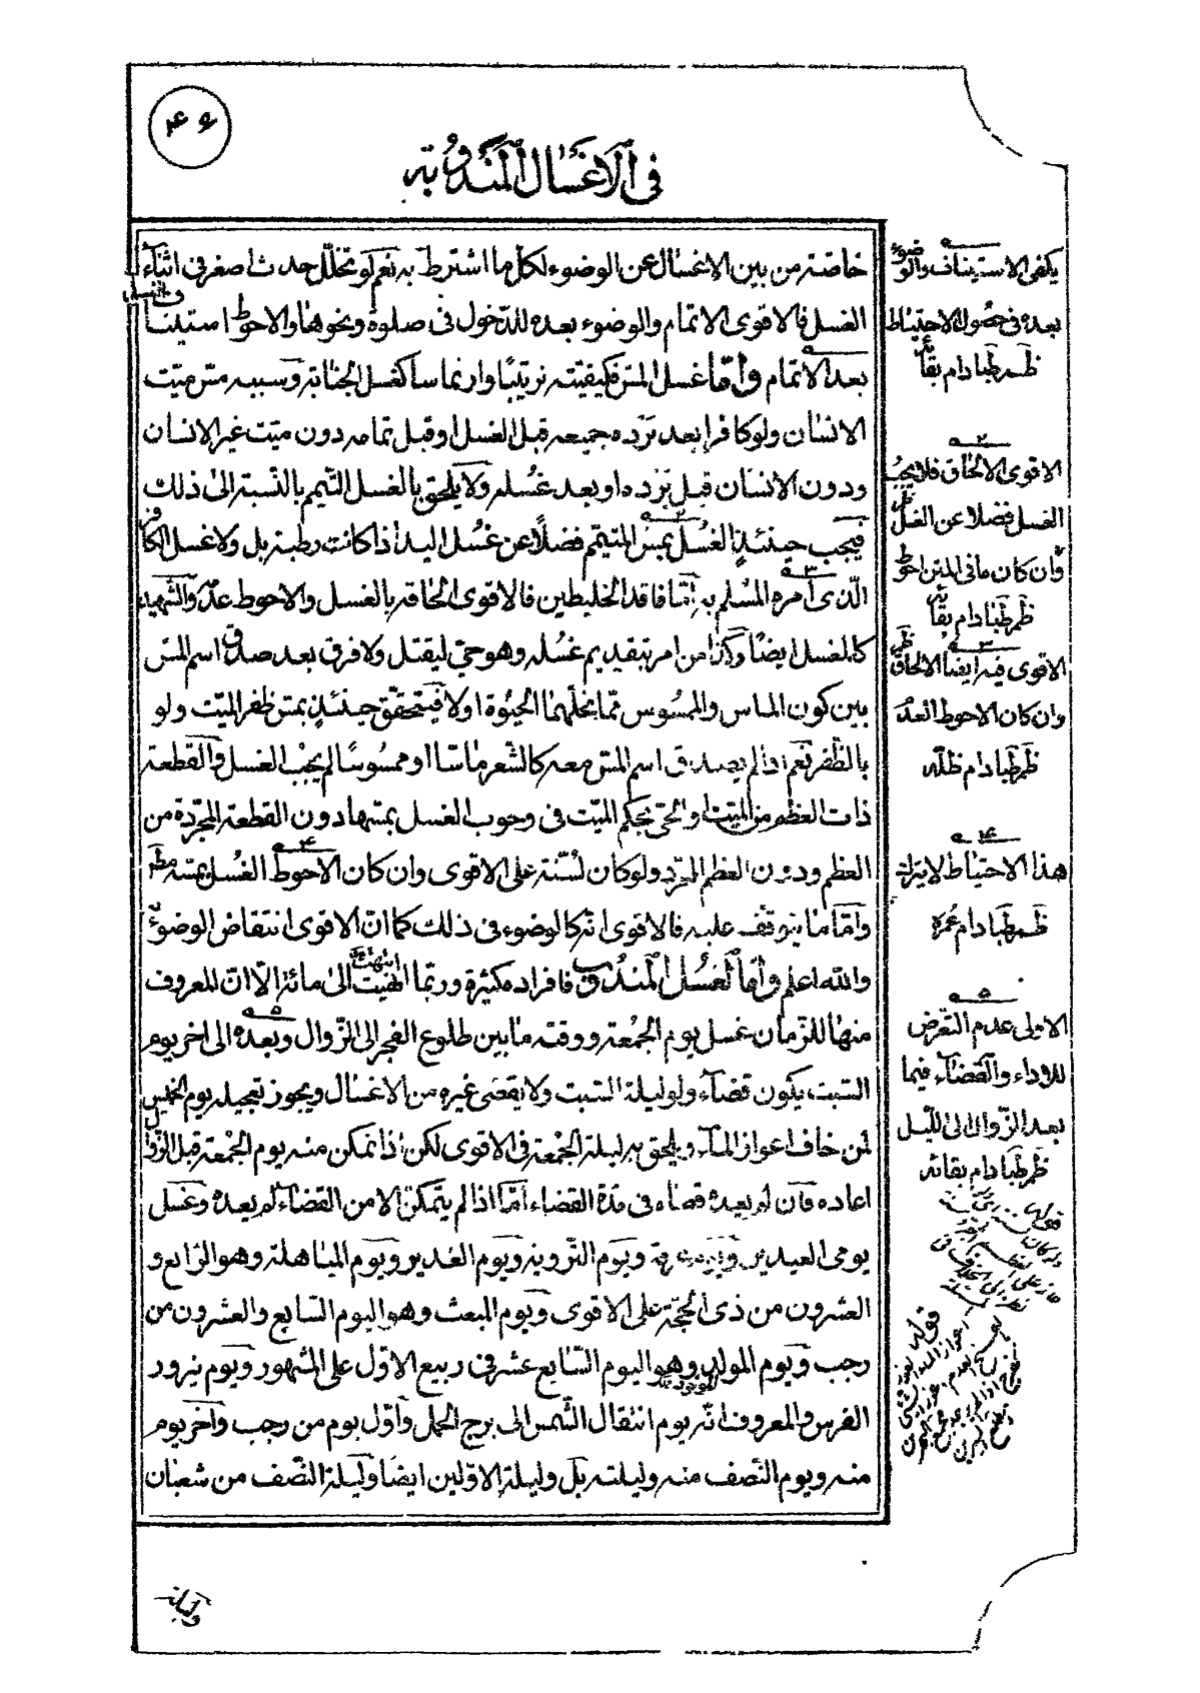 ۴۶
في الاغسال المندوبة
خاصة من بين الاغسال عن الوضوء لكل ما اشترط به نعم لو تخلل حدث اصغر في اثناء
الغسل فالاقوى الاتمام والوضوء بعده للدخول في صلوة ونحوها والاحوط استيناف الغسل
بعد الاتمام واما غسل المس فكيفيته ترتيبا وارتماسا كغسل الجنابة وسببه مس ميت
الانسان ولو كافرا بعد برده جميعه قبل الغسل او قبل تمامه دون ميت غير الانسان
ودون الانسان قبل برده او بعد غسله ولا يلحق بالغسل التيمم بالنسبة الى ذلك
فيجب حينئذ الغسل بمس المتيمم فضلا عن غسل اليد اذا كانت رطبة بل ولا غسل الكافر
الذي امره المسلم به اما فاقد الخليطين فالاقوى الحاقه بالغسل والاحوط عدمه والشهيد
كالمغسل ايضا وكذا من امر بتقديم غسله وهو حي ليقتل ولا فرق بعد صدق اسم المس
بين كون الماس والممسوس مما تحلهما الحيوة او لا فيتحقق حينئذ بمس ظفر الميت ولو
بالظفر نعم اذا لم يصدق اسم المس معه كالشعر ماسا او ممسوسا لم يجب الغسل والقطعة
ذات العظم من الميت او الحي بحكم الميت في وجوب الغسل بمسها دون القطعة المجردة من
العظم ودون العظم المجرد ولو كان لسنة على الاقوى وان كان الاحوط الغسل بمسه مط
واما ما يتوقف عليه فالاقوى انه كالوضوء في ذلك كما ان الاقوى انتقاض الوضوء به
والله اعلم واما الغسل المندوب فافراده كثيرة وربما انهيت الى مائة الا ان المعروف
منها للزمان غسل يوم الجمعة ووقته ما بين طلوع الفجر الى الزوال وبعده الى اخر يوم
السبت يكون قضاء ولو ليلة السبت ولا يقضى غيره من الاغسال ويجوز تعجيله يوم الخميس
لمن خاف اعواز الماء ويلحق به ليلة الجمعة في الاقوى لكن اذا تمكن منه يوم الجمعة قبل الزوال
اعاده فان لم يعيده قضاه في مدة القضاء اما اذا لم يتمكن الا من القضاء لم يعيده وغسل
يومي العيدين ويوم عرفة ويوم التروية ويوم الغدير ويوم المباهلة وهو الرابع و
العشرون من ذي الحجة على الاقوى ويوم المبعث وهو اليوم السابع والعشرون من
رجب ويوم المولود وهو اليوم السابع عشر في ربيع الاول على المشهور ويوم نيروز
الفرس والمعروف انه يوم انتقال الشمس الى برج الحمل واول يوم من رجب واخر يوم
منه ويوم النصف منه وليلته بل وليلة الاولين ايضا وليلة النصف من شعبان
وليلة
يكفي الاستيناف والوضوء
بعده في حصول الاحتياط
ظم طبا دام بقائه
۲
الاقوى الالحاق فلا يجب
الغسل فضلا عن الغسل
وان كان ما في المتن احوط
ظم طبا دام بقائه
۳
الاقوى فيه ايضا الالحاق
وان كان الاحوط العدم
ظم طبا دام ظله
۴
هذا الاحتياط لا يترك
ظم طبا دام عمره
۵
الاولى عدم التعرض
للاداء والقضاء فيما
بعد الزوال الى الليل
ظم طبا دام بقائه